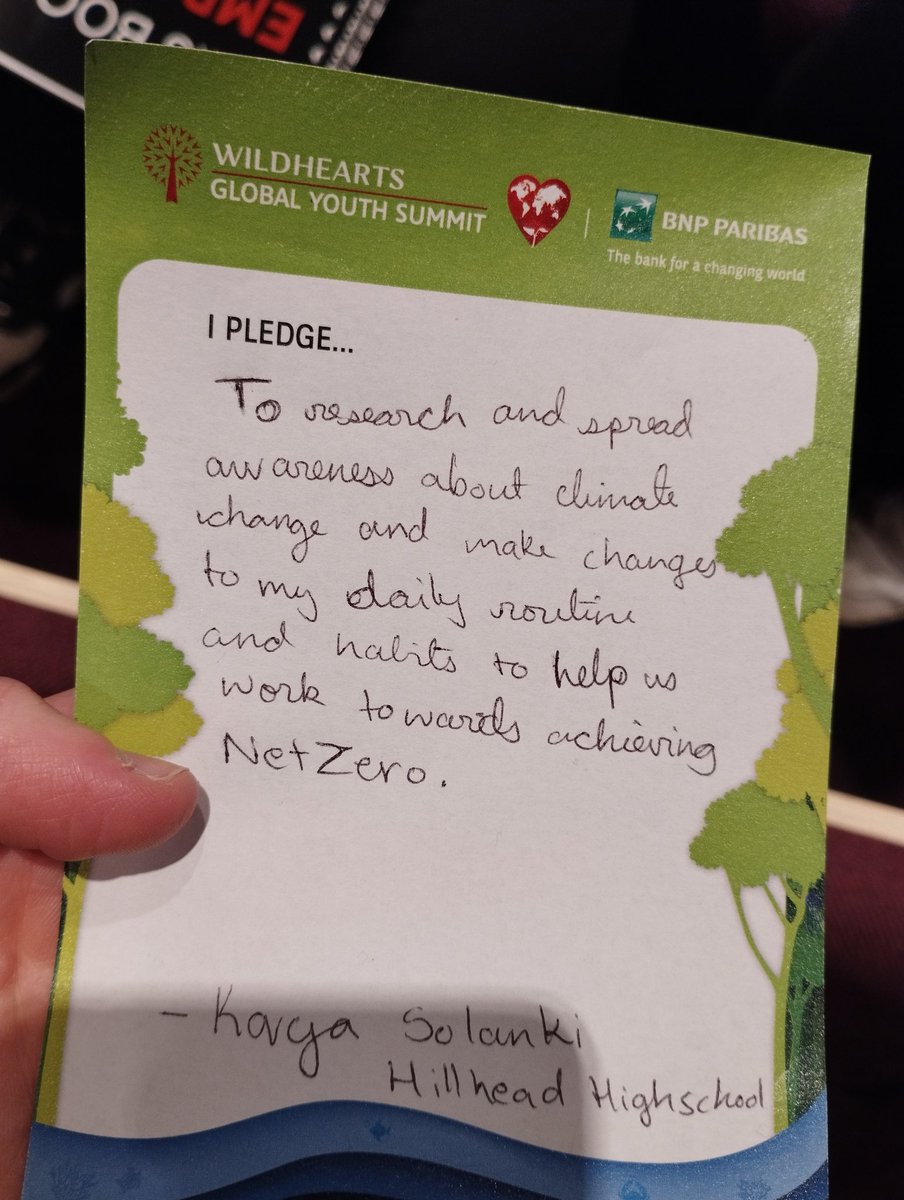 BOO
EMP
WILDHEARTS
GLOBAL YOUTH SUMMIT
BNP PARIBAS
The bank for a changing world
I PLEDGE...
To research and spread
awareness about climate
change and make changes
to my daily routine
and habits to help us
work towards achieving
NetZero.
- Kavya Solanki
Hillhead Highschool